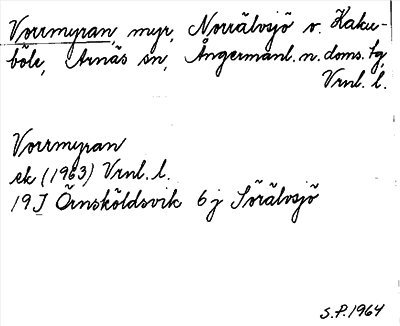 Vorrmyran, myr, Norrälvsjö o. Kaku-
böle, Arnäs sn, Ångermanl. n. doms. tg,
Vrnl. l.
Vorrmyran
ek (1963) Vrnl. l.
19 I Örnsköldsvik 6 j Sörälvsjö
S.P. 1964